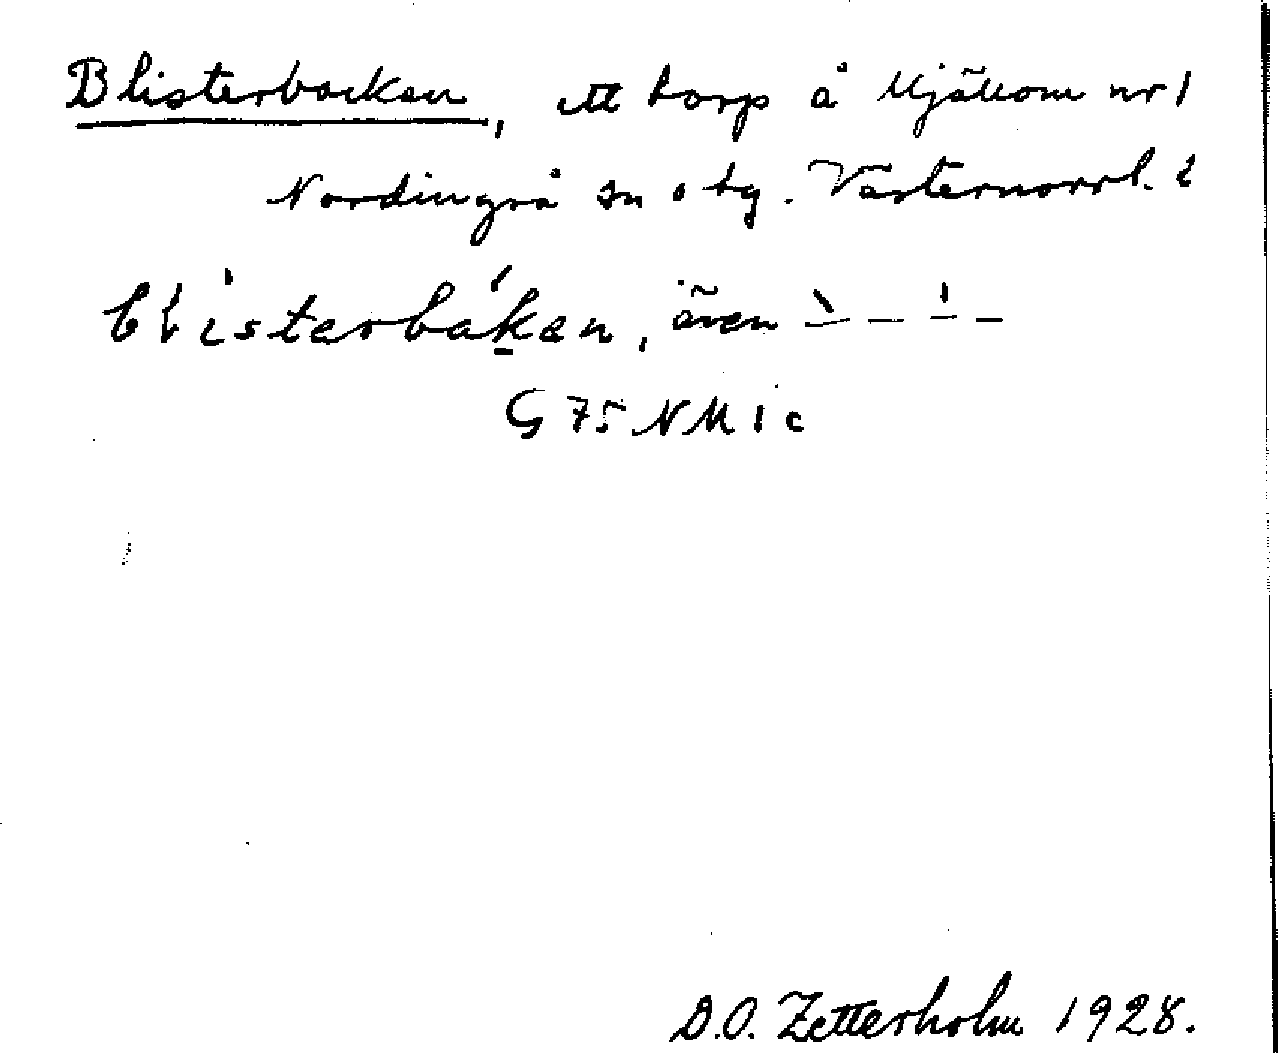 Blisterbacken, ett torp å Mjällom nr 1
Nordingrå sn o tg. Västernorrl. l
blisterbáken, även ̀– – –́ –
G 75 NM 1 c
D.O. Zetterholm 1928.